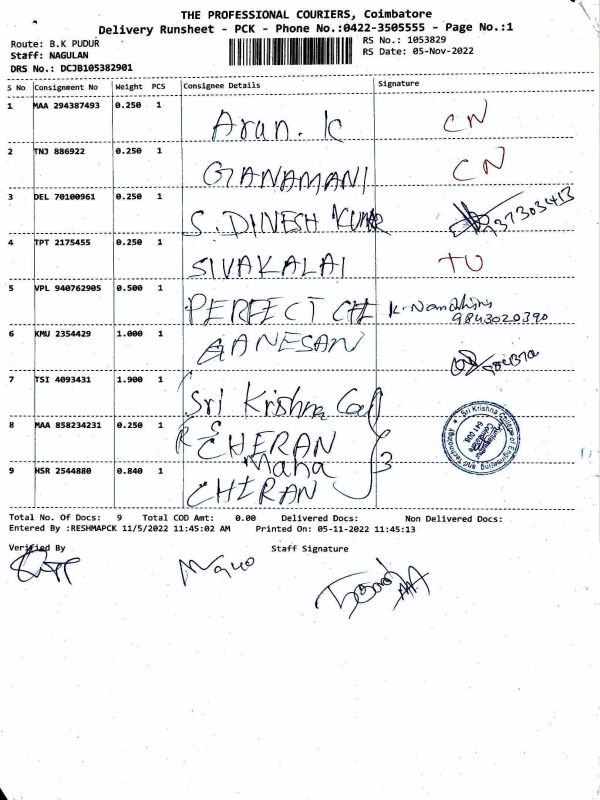 THE PROFESSIONAL COURIERS, Coimbatore
Delivery Runsheet - PCK - Phone No.:0422-3505555 - Page No.:1
Route: B.K PUDUR
RS No.: 1053829
Staff: NAGULAN
RS Date: 05-Nov-2022
DRS No.: DCJB105382901
S No Consignment No Weight PCS Consignee Details Signature
1 MAA 294387493 0.250 1 Arun. K CN
2 TNJ 886922 0.250 1 GNANAMANI CN
3 DEL 70100961 0.250 1 S. DINESH KUMAR
4 TPT 2175455 0.250 1 SIVAKALAI TU
5 VPL 940762905 0.500 1 PERFECT CHE K. Nandhini
9843020390
6 KMU 2354429 1.000 1 GANESAN
7 TSI 4093431 1.900 1 Sri Krishna Coll
8 MAA 858234231 0.250 1 CHERAN
Maha
3
9 HSR 2544880 0.840 1 CHIRAN
Sri Krishna College of Engineering and Technology
641 008
Total No. Of Docs: 9 Total COD Amt: 0.00 Delivered Docs: Non Delivered Docs:
Entered By :RESHMAPCK 11/5/2022 11:45:02 AM Printed On: 05-11-2022 11:45:13
Verified By Staff Signature